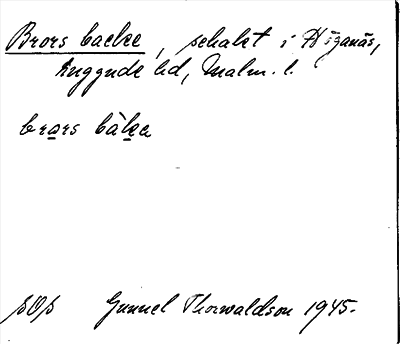 Brors backe, schakt i Höganäs,
Luggude hd, Malm. l.
brars bàka
pOp Gunnel Thorwaldson 1945.